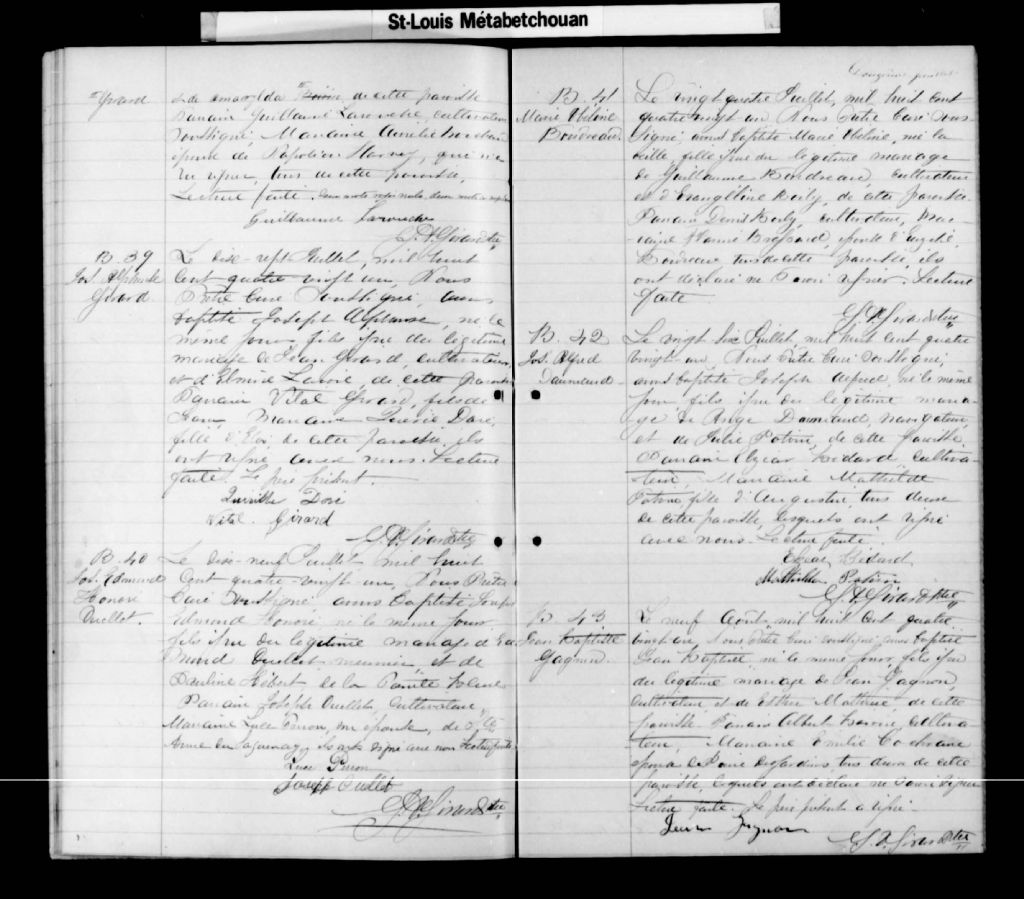 St-Louis Métabetchouan
Girard
et de de cette paroisse
Parrain Guillaume Larouche, cultivateur
soussigné, Marraine
épouse de Napoléon Harvey, qui n'a
pu signer, tous de cette paroisse.
Lecture faite.
Guillaume Larouche
B. 39
Jos. Alphonse
Girard
Le dix-sept Juillet, mil huit
cent quatre vingt un, Nous
Prêtre Curé soussigné, avons
baptisé Joseph Alphonse, né le
même jour, fils issu du légitime
mariage de Jean Girard, cultivateur
et d'Elmire Lavoie, de cette paroisse
Parrain Vital Girard, fils de
Jean, Marraine Doré,
fille d'Eloi de cette paroisse. ils
ont signé avec nous. Lecture
faite. Le père présent.
Doré
Vital Girard
Girard Ptre
B. 40
Jos. Edmond
Honoré
Ouellet.
Le dix-neuf Juillet mil huit
Cent quatre-vingt un, Nous Prêtre
Curé soussigné avons baptisé Joseph
Edmond Honoré né le même jour
fils issu du légitime mariage d'Ed-
mond Ouellet meunier et de
Pauline Hébert de la Pointe Bleue
Parrain Joseph Ouellet, Cultivateur,
Marraine Luce Perron, son épouse, de Ste
Anne du Saguenay, ils ont signé avec nous Lecture faite.
Luce Perron
Joseph Ouellet
Girard Ptre
Douzième feuillet
B. 41
Marie Hélène
Boudreault
Le vingt quatre Juillet, mil huit cent
quatre vingt un Nous Prêtre Curé sous-
signé, avons baptisé Marie Hélène, née la
veille, fille issue du légitime mariage
de Guillaume Boudreault, cultivateur
et d'Evangéline de cette paroisse.
Parrain cultivateur, Mar-
raine Brassard, épouse
Boudreault tous de cette paroisse, ils
ont déclaré ne savoir signer. Lecture
faite
Girard Ptre
B. 42
Jos. Alfred
Le vingt six Juillet, mil huit cent quatre
vingt un, Nous Prêtre Curé soussigné,
avons baptisé Joseph Alfred, né le même
jour fils issu du légitime maria-
ge de navigateur,
et de Julie Potvin, de cette paroisse.
Parrain Elzéar Bédard cultiva-
teur, Marraine Mathilde
Potvin fille d'Augustin, tous deux
de cette paroisse, lesquels ont signé
avec nous. Lecture faite.
Elzéar Bédard
Mathilde Potvin
Girard Ptre
B. 43
Jean Baptiste
Gagnon.
Le neuf Août, mil huit cent quatre
vingt un Nous Prêtre Curé soussigné avons baptisé
Jean Baptiste, né le même jour, fils issu
du légitime mariage de Jean Gagnon,
cultivateur, et de Esther de cette
paroisse. Parrain Albert cultiva-
teur, Marraine Emilie Cochrane
épouse de Desjardins, tous deux de cette
paroisse, lesquels ont déclaré ne savoir signer
Lecture faite. Le père présent a signé
Jean Gagnon
Girard Ptre